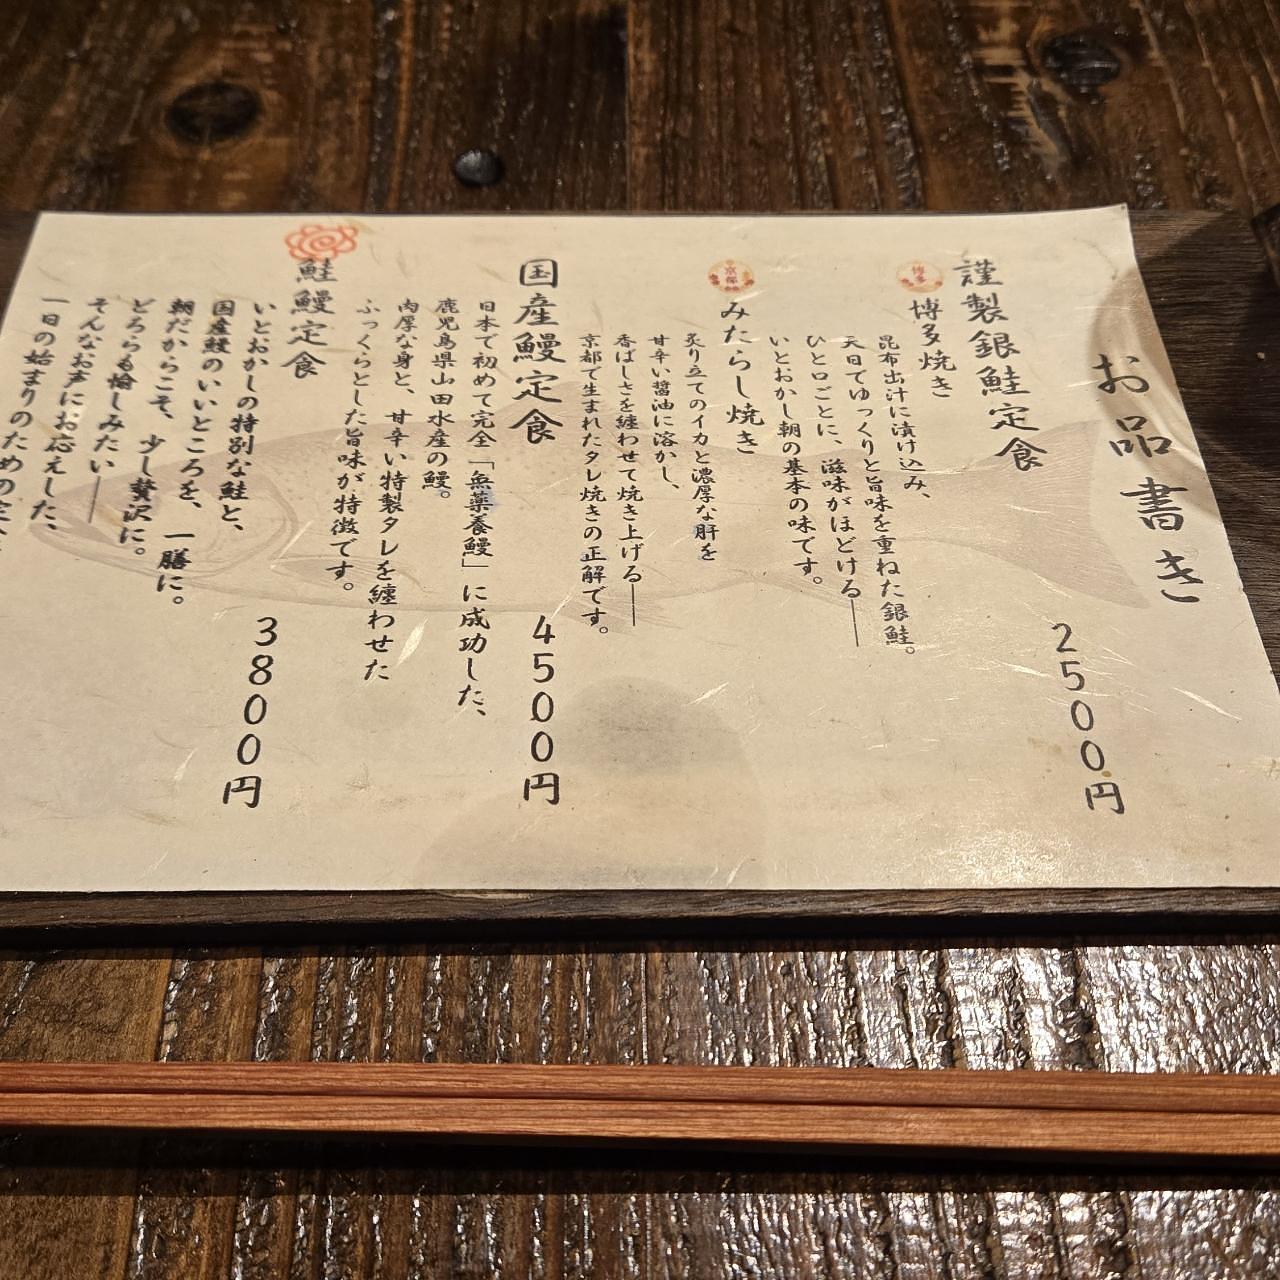 お品書き
謹製銀鮭定食
2500円
博多
博多焼き
昆布出汁に漬け込み、
天日でゆっくりと旨味を重ねた銀鮭。
ひと口ごとに、滋味がほどける――
いとおかし朝の基本の味です。
京都
みたらし焼き
炙り立てのイカと濃厚な肝を
甘辛い醤油に溶かし、
香ばしさを纏わせて焼き上げる――
京都で生まれたタレ焼きの正解です。
国産鰻定食
4500円
日本で初めて完全「無薬養鰻」に成功した、
鹿児島県山田水産の鰻。
肉厚な身と、甘辛い特製タレを纏わせた
ふっくらとした旨味が特徴です。
鮭鰻定食
3800円
いとおかしの特別な鮭と、
国産鮭のいいところを、一膳に。
朝だからこそ、少し贅沢に。
どちらも愉しみたい――
そんなお声にお応えした、
一日の始まりのための